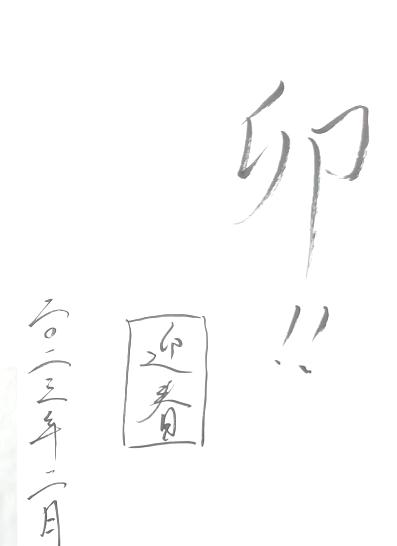 卯!!
迎春
二〇二三年二月